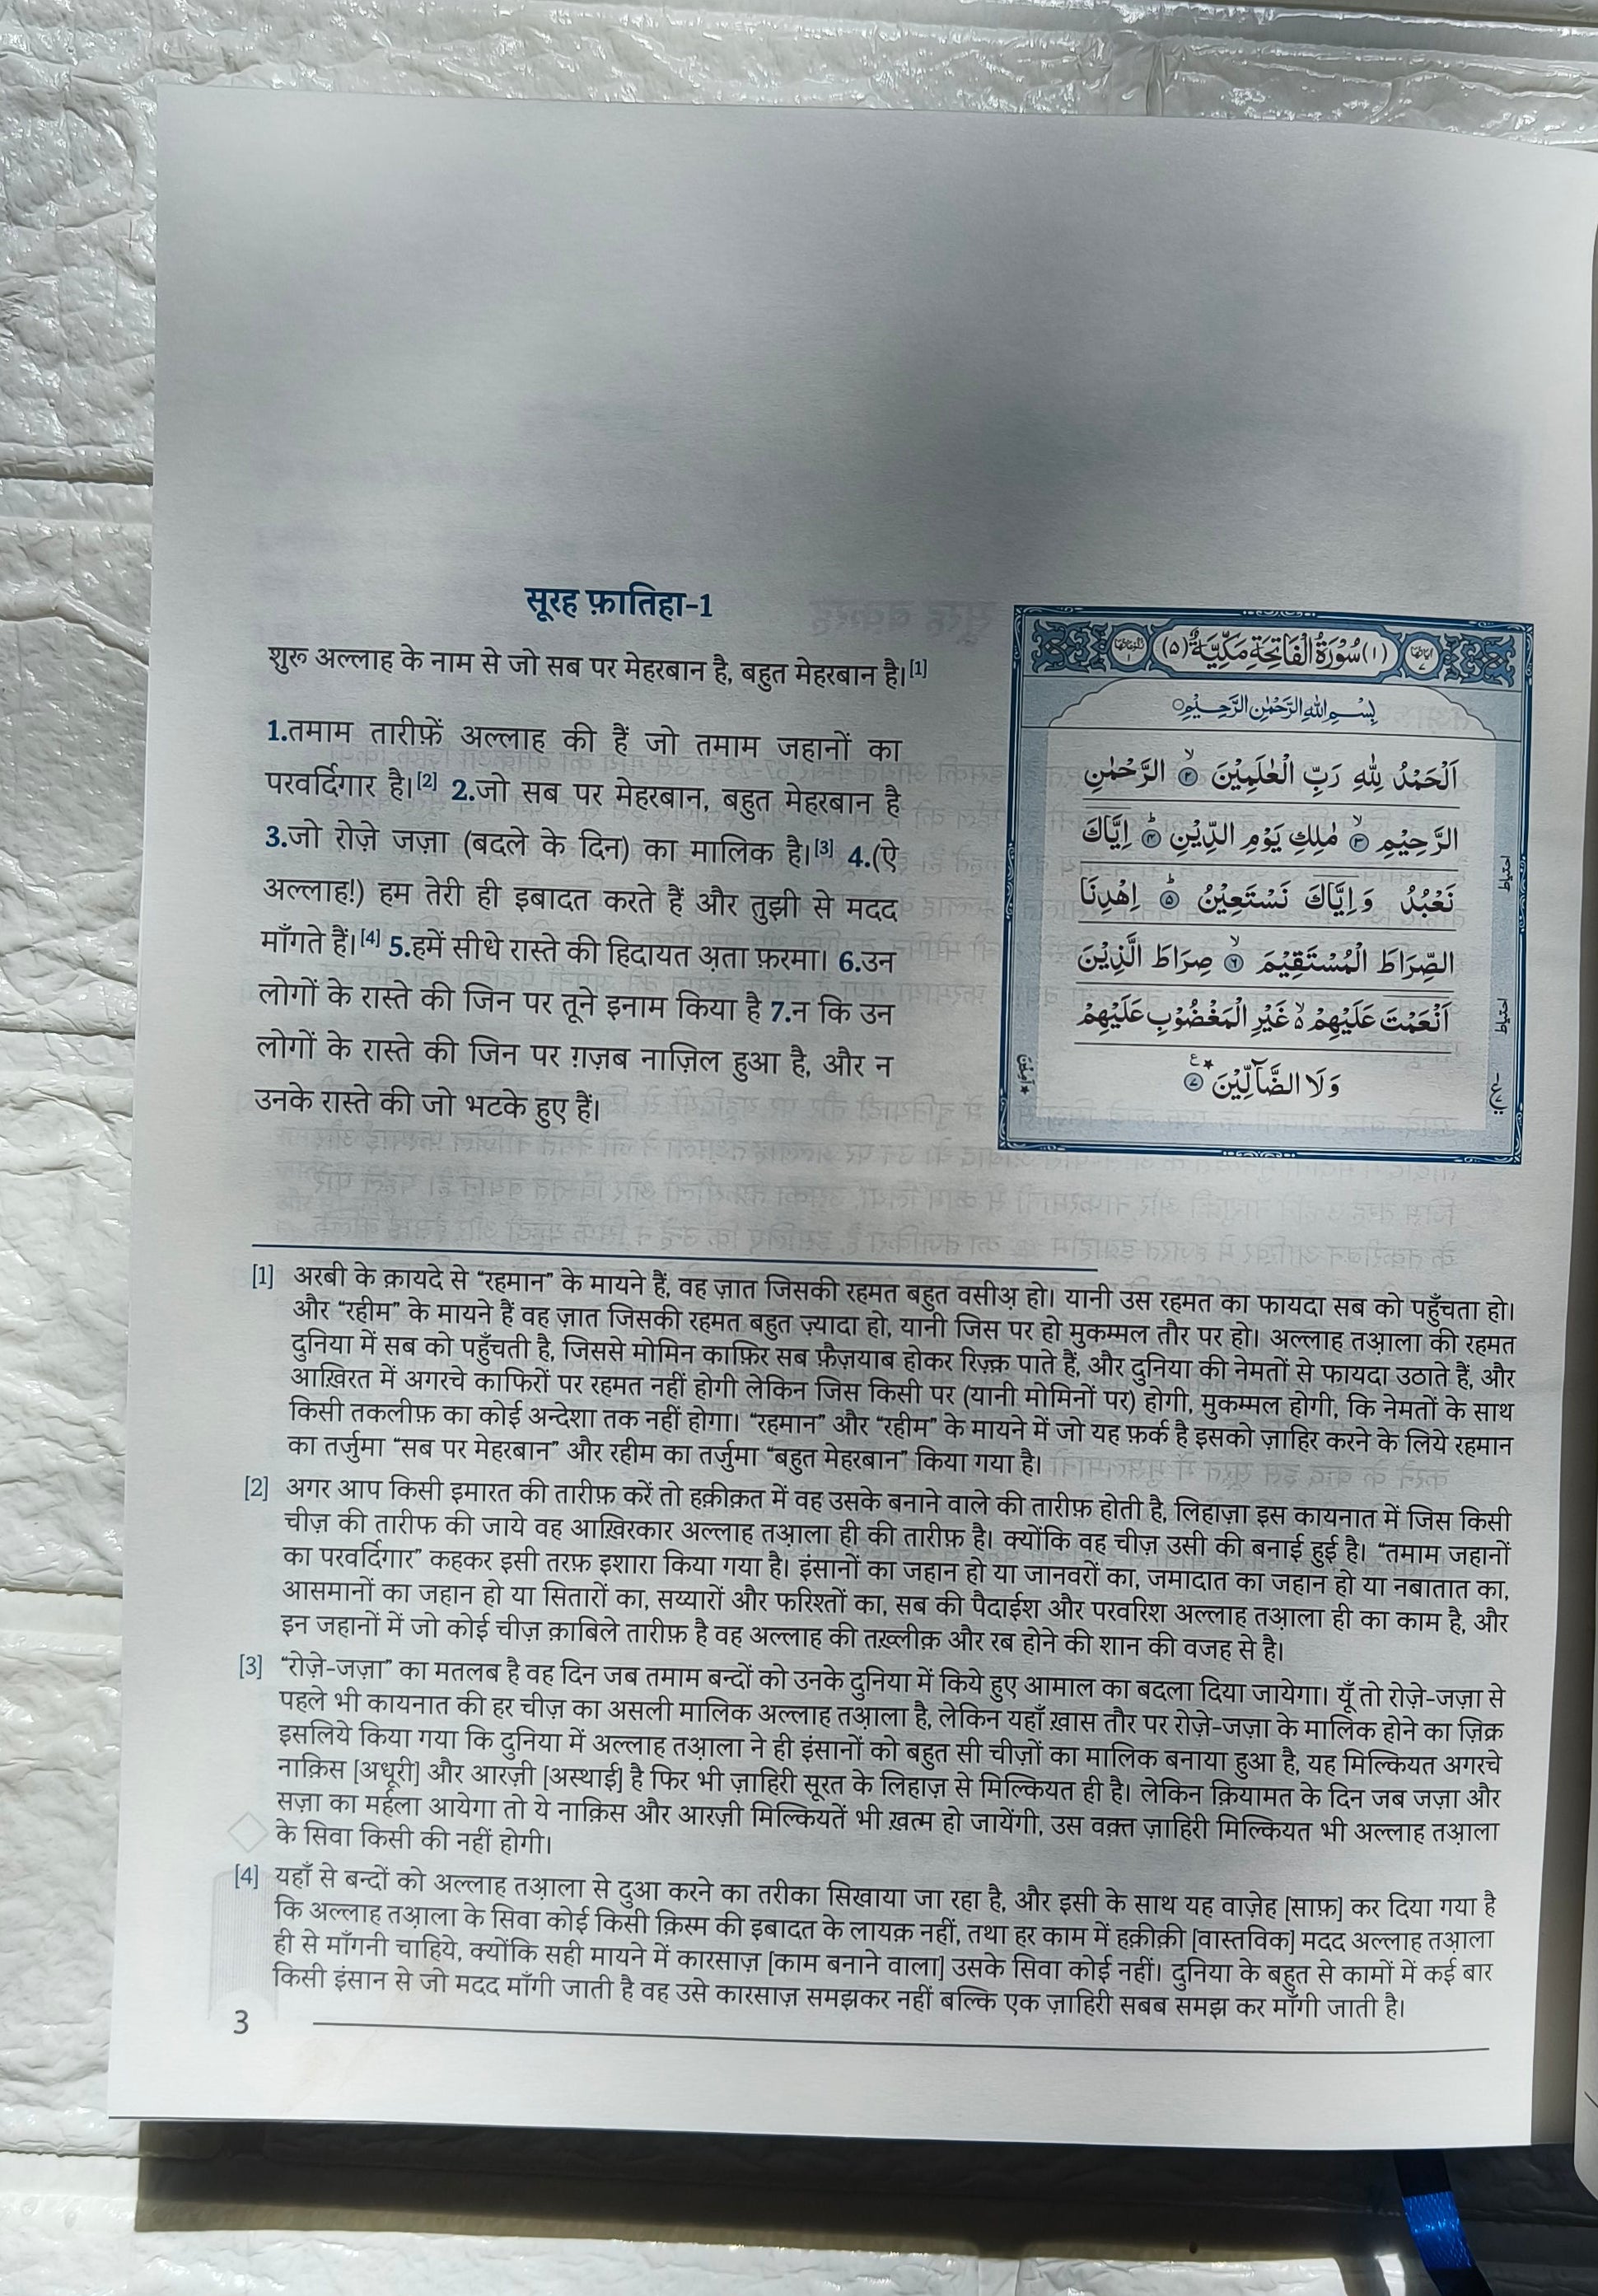 सूरह फ़ातिहा-1
शुरू अल्लाह के नाम से जो सब पर मेहरबान है, बहुत मेहरबान है।[1]
1.तमाम तारीफ़ें अल्लाह की हैं जो तमाम जहानों का
परवर्दिगार है।[2] 2.जो सब पर मेहरबान, बहुत मेहरबान है
3.जो रोज़े जज़ा (बदले के दिन) का मालिक है।[3] 4.(ऐ
अल्लाह!) हम तेरी ही इबादत करते हैं और तुझी से मदद
माँगते हैं।[4] 5.हमें सीधे रास्ते की हिदायत अ़ता फ़रमा। 6.उन
लोगों के रास्ते की जिन पर तूने इनाम किया है 7.न कि उन
लोगों के रास्ते की जिन पर ग़ज़ब नाज़िल हुआ है, और न
उनके रास्ते की जो भटके हुए हैं।
(۱) سُوْرَةُ الْفَاتِحَةِ مَكِّيَّةٌ (۵)
بِسْمِ اللهِ الرَّحْمٰنِ الرَّحِيْمِ
اَلْحَمْدُ لِلّٰهِ رَبِّ الْعٰلَمِيْنَ ۙ﴿۲﴾ الرَّحْمٰنِ
الرَّحِيْمِ ۙ﴿۳﴾ مٰلِكِ يَوْمِ الدِّيْنِ ؕ﴿۴﴾ اِيَّاكَ
نَعْبُدُ وَاِيَّاكَ نَسْتَعِيْنُ ؕ﴿۵﴾ اِهْدِنَا
الصِّرَاطَ الْمُسْتَقِيْمَ ۙ﴿۶﴾ صِرَاطَ الَّذِيْنَ
اَنْعَمْتَ عَلَيْهِمْ ۙ۬ غَيْرِ الْمَغْضُوْبِ عَلَيْهِمْ
وَلَا الضَّآلِّيْنَ ﴿۷﴾
[1] अरबी के क़ायदे से “रहमान” के मायने हैं, वह ज़ात जिसकी रहमत बहुत वसीअ़ हो। यानी उस रहमत का फायदा सब को पहुँचता हो।
और “रहीम” के मायने हैं वह ज़ात जिसकी रहमत बहुत ज़्यादा हो, यानी जिस पर हो मुकम्मल तौर पर हो। अल्लाह तआ़ला की रहमत
दुनिया में सब को पहुँचती है, जिससे मोमिन काफ़िर सब फ़ैज़याब होकर रिज़्क़ पाते हैं, और दुनिया की नेमतों से फायदा उठाते हैं, और
आख़िरत में अगरचे काफिरों पर रहमत नहीं होगी लेकिन जिस किसी पर (यानी मोमिनों पर) होगी, मुकम्मल होगी, कि नेमतों के साथ
किसी तकलीफ़ का कोई अन्देशा तक नहीं होगा। “रहमान” और “रहीम” के मायने में जो यह फ़र्क है इसको ज़ाहिर करने के लिये रहमान
का तर्जुमा “सब पर मेहरबान” और रहीम का तर्जुमा “बहुत मेहरबान” किया गया है।
[2] अगर आप किसी इमारत की तारीफ़ करें तो हक़ीक़त में वह उसके बनाने वाले की तारीफ़ होती है, लिहाज़ा इस कायनात में जिस किसी
चीज़ की तारीफ की जाये वह आख़िरकार अल्लाह तआ़ला ही की तारीफ़ है। क्योंकि वह चीज़ उसी की बनाई हुई है। “तमाम जहानों
का परवर्दिगार” कहकर इसी तरफ़ इशारा किया गया है। इंसानों का जहान हो या जानवरों का, जमादात का जहान हो या नबातात का,
आसमानों का जहान हो या सितारों का, सय्यारों और फरिश्तों का, सब की पैदाईश और परवरिश अल्लाह तआ़ला ही का काम है, और
इन जहानों में जो कोई चीज़ क़ाबिले तारीफ़ है वह अल्लाह की तख़्लीक़ और रब होने की शान की वजह से है।
[3] “रोज़े-जज़ा” का मतलब है वह दिन जब तमाम बन्दों को उनके दुनिया में किये हुए आमाल का बदला दिया जायेगा। यूँ तो रोज़े-जज़ा से
पहले भी कायनात की हर चीज़ का असली मालिक अल्लाह तआ़ला है, लेकिन यहाँ ख़ास तौर पर रोज़े-जज़ा के मालिक होने का ज़िक्र
इसलिये किया गया कि दुनिया में अल्लाह तआ़ला ने ही इंसानों को बहुत सी चीज़ों का मालिक बनाया हुआ है, यह मिल्कियत अगरचे
नाक़िस [अधूरी] और आरज़ी [अस्थाई] है फिर भी ज़ाहिरी सूरत के लिहाज़ से मिल्कियत ही है। लेकिन क़ियामत के दिन जब जज़ा और
सज़ा का मर्हला आयेगा तो ये नाक़िस और आरज़ी मिल्कियतें भी ख़त्म हो जायेंगी, उस वक़्त ज़ाहिरी मिल्कियत भी अल्लाह तआ़ला
के सिवा किसी की नहीं होगी।
[4] यहाँ से बन्दों को अल्लाह तआ़ला से दुआ करने का तरीका सिखाया जा रहा है, और इसी के साथ यह वाज़ेह [साफ़] कर दिया गया है
कि अल्लाह तआ़ला के सिवा कोई किसी क़िस्म की इबादत के लायक़ नहीं, तथा हर काम में हक़ीक़ी [वास्तविक] मदद अल्लाह तआ़ला
ही से माँगनी चाहिये, क्योंकि सही मायने में कारसाज़ [काम बनाने वाला] उसके सिवा कोई नहीं। दुनिया के बहुत से कामों में कई बार
किसी इंसान से जो मदद माँगी जाती है वह उसे कारसाज़ समझकर नहीं बल्कि एक ज़ाहिरी सबब समझ कर माँगी जाती है।
3